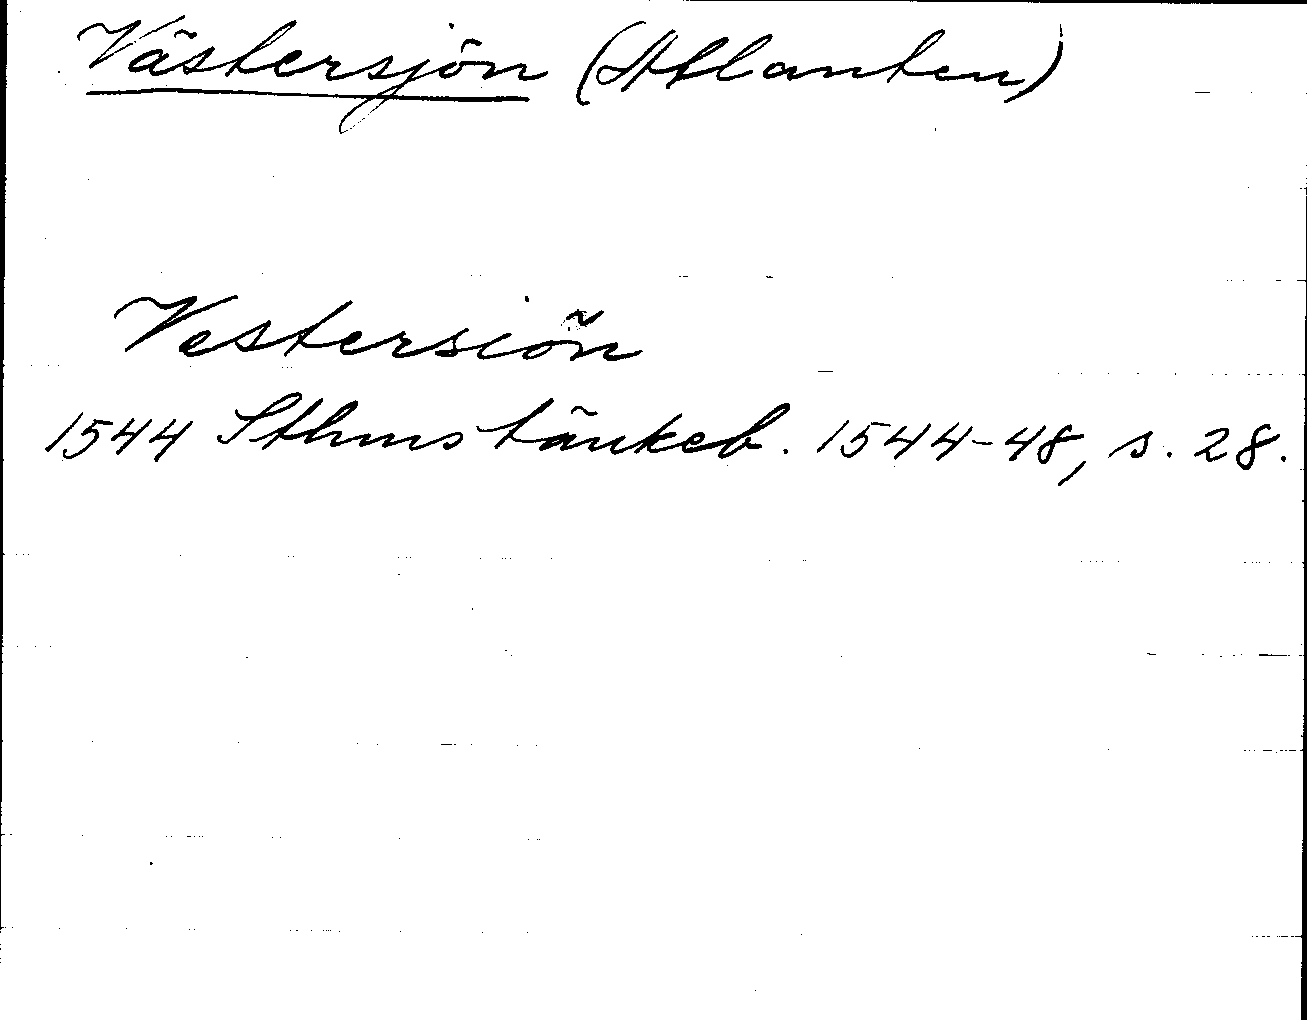 Västersjön (Atlanten)
Vestersiön
1544 Sthms tänkeb. 1544-48, s. 28.